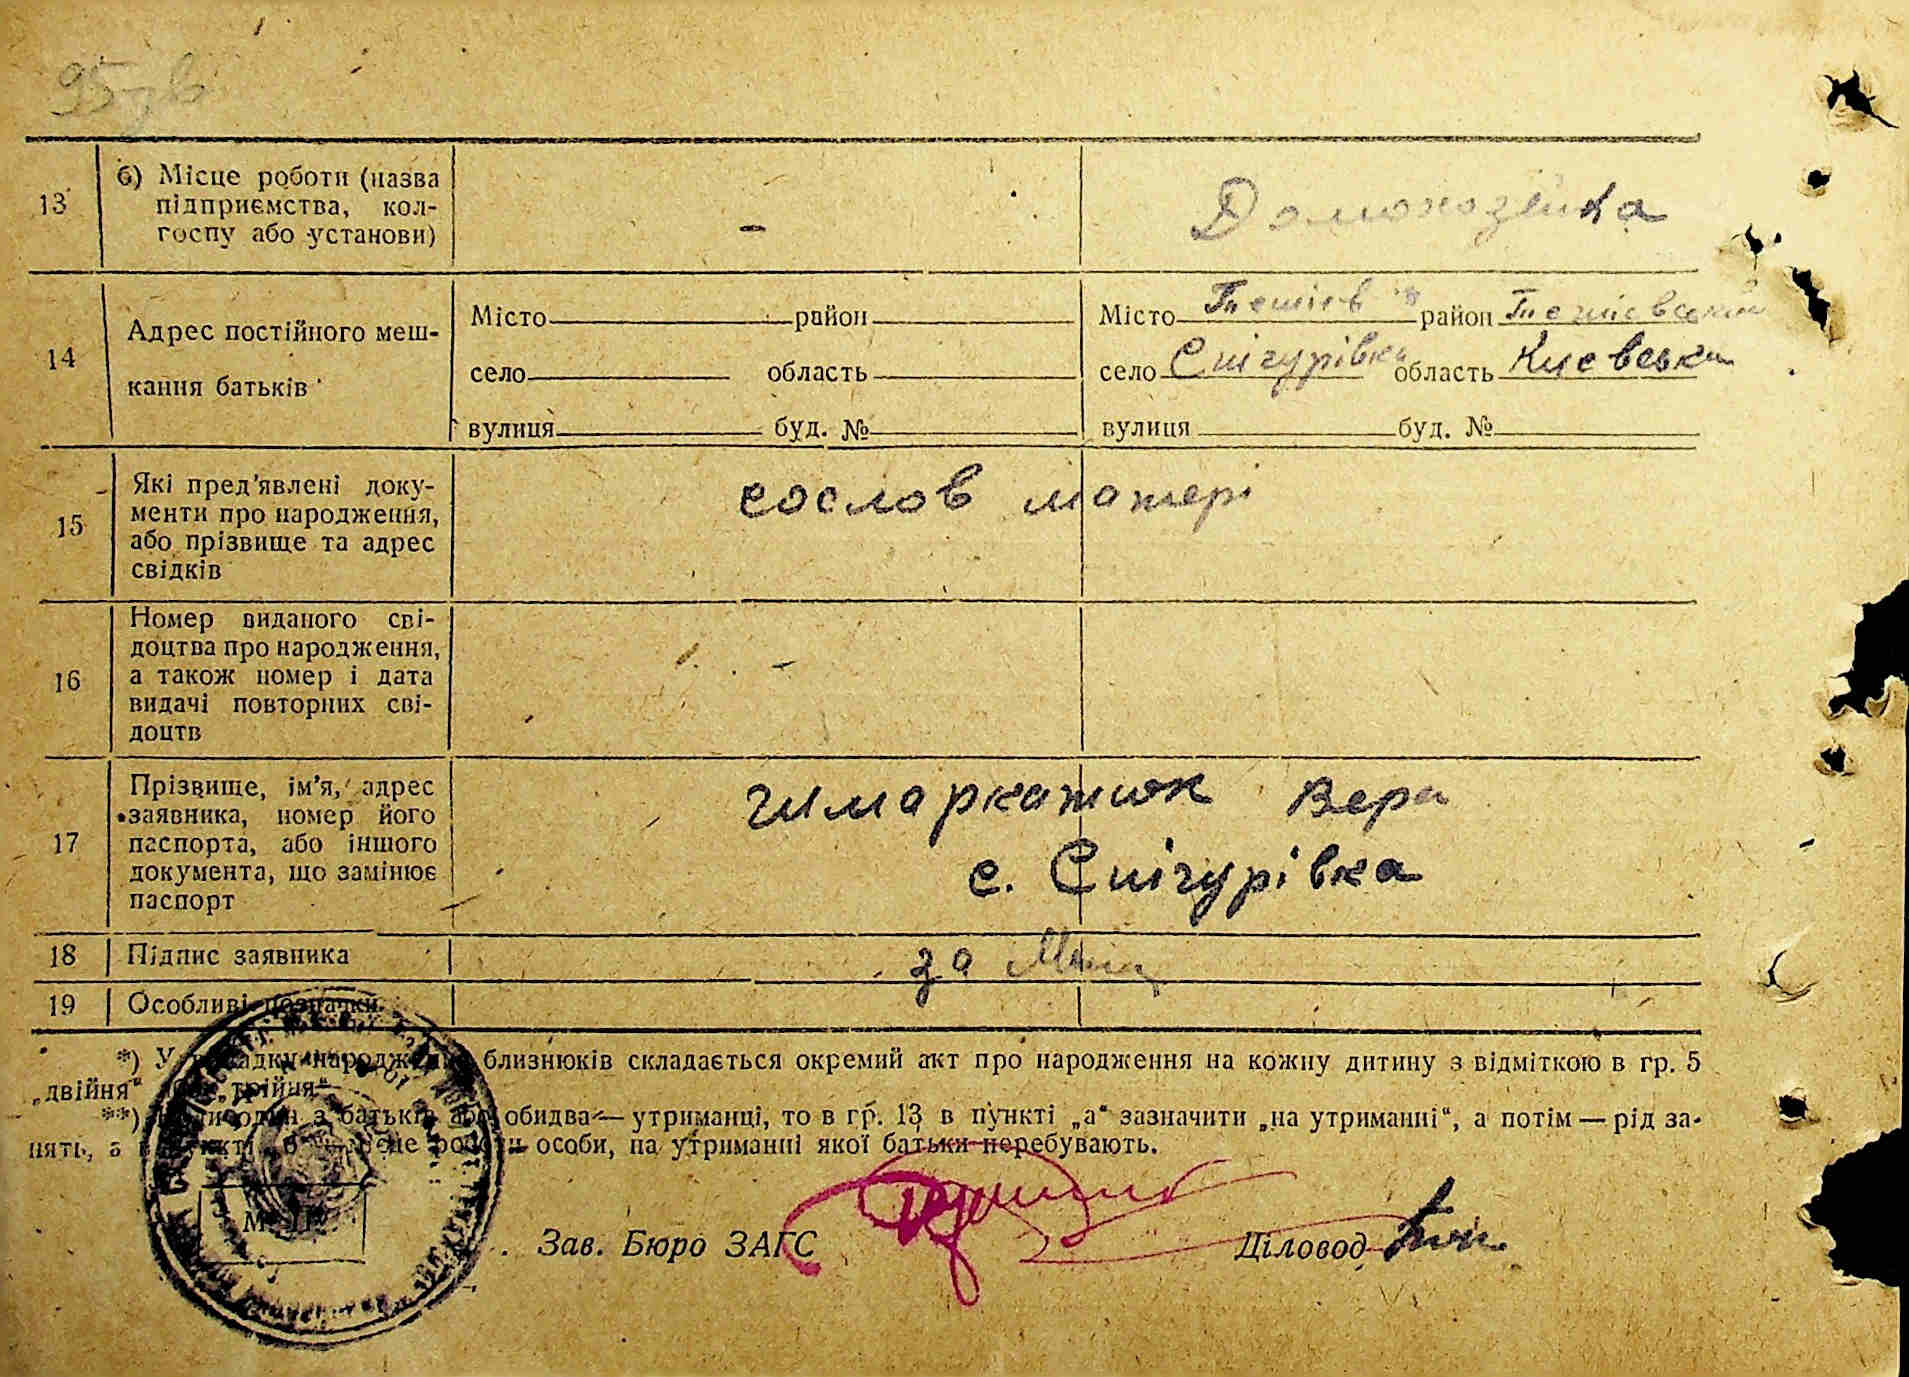 95 зв
13 б) Місце роботи (назва
підприємства, кол-
госпу або установи)
- Домохазяйка
14 Адрес постійного меш-
кання батьків
Місто район
село область
вулиця буд. №
Місто Тетіїв район Тетіївський
село Снігурівка область Киевська
вулиця буд. №
15 Які пред'явлені доку-
менти про народження,
або прізвище та адрес
свідків
сослов матері
16 Номер виданого сві-
доцтва про народження,
а також номер і дата
видачі повторних сві-
доцтв
17 Прізвище, ім'я, адрес
заявника, номер його
паспорта, або іншого
документа, що замінює
паспорт
Вера
с. Снігурівка
18 Підпис заявника
за
19 Особливі позначки
*) У випадку народження близнюків складається окремий акт про народження на кожну дитину з відміткою в гр. 5
„двійня" „трійня"
**) Коли один з батьків або обидва — утриманці, то в гр. 13 в пункті „а" зазначити „на утриманні", а потім — рід за-
нять, а в пункті „б" — місце роботи особи, на утриманні якої батьки перебувають.
М. П.
Зав. Бюро ЗАГС Діловод